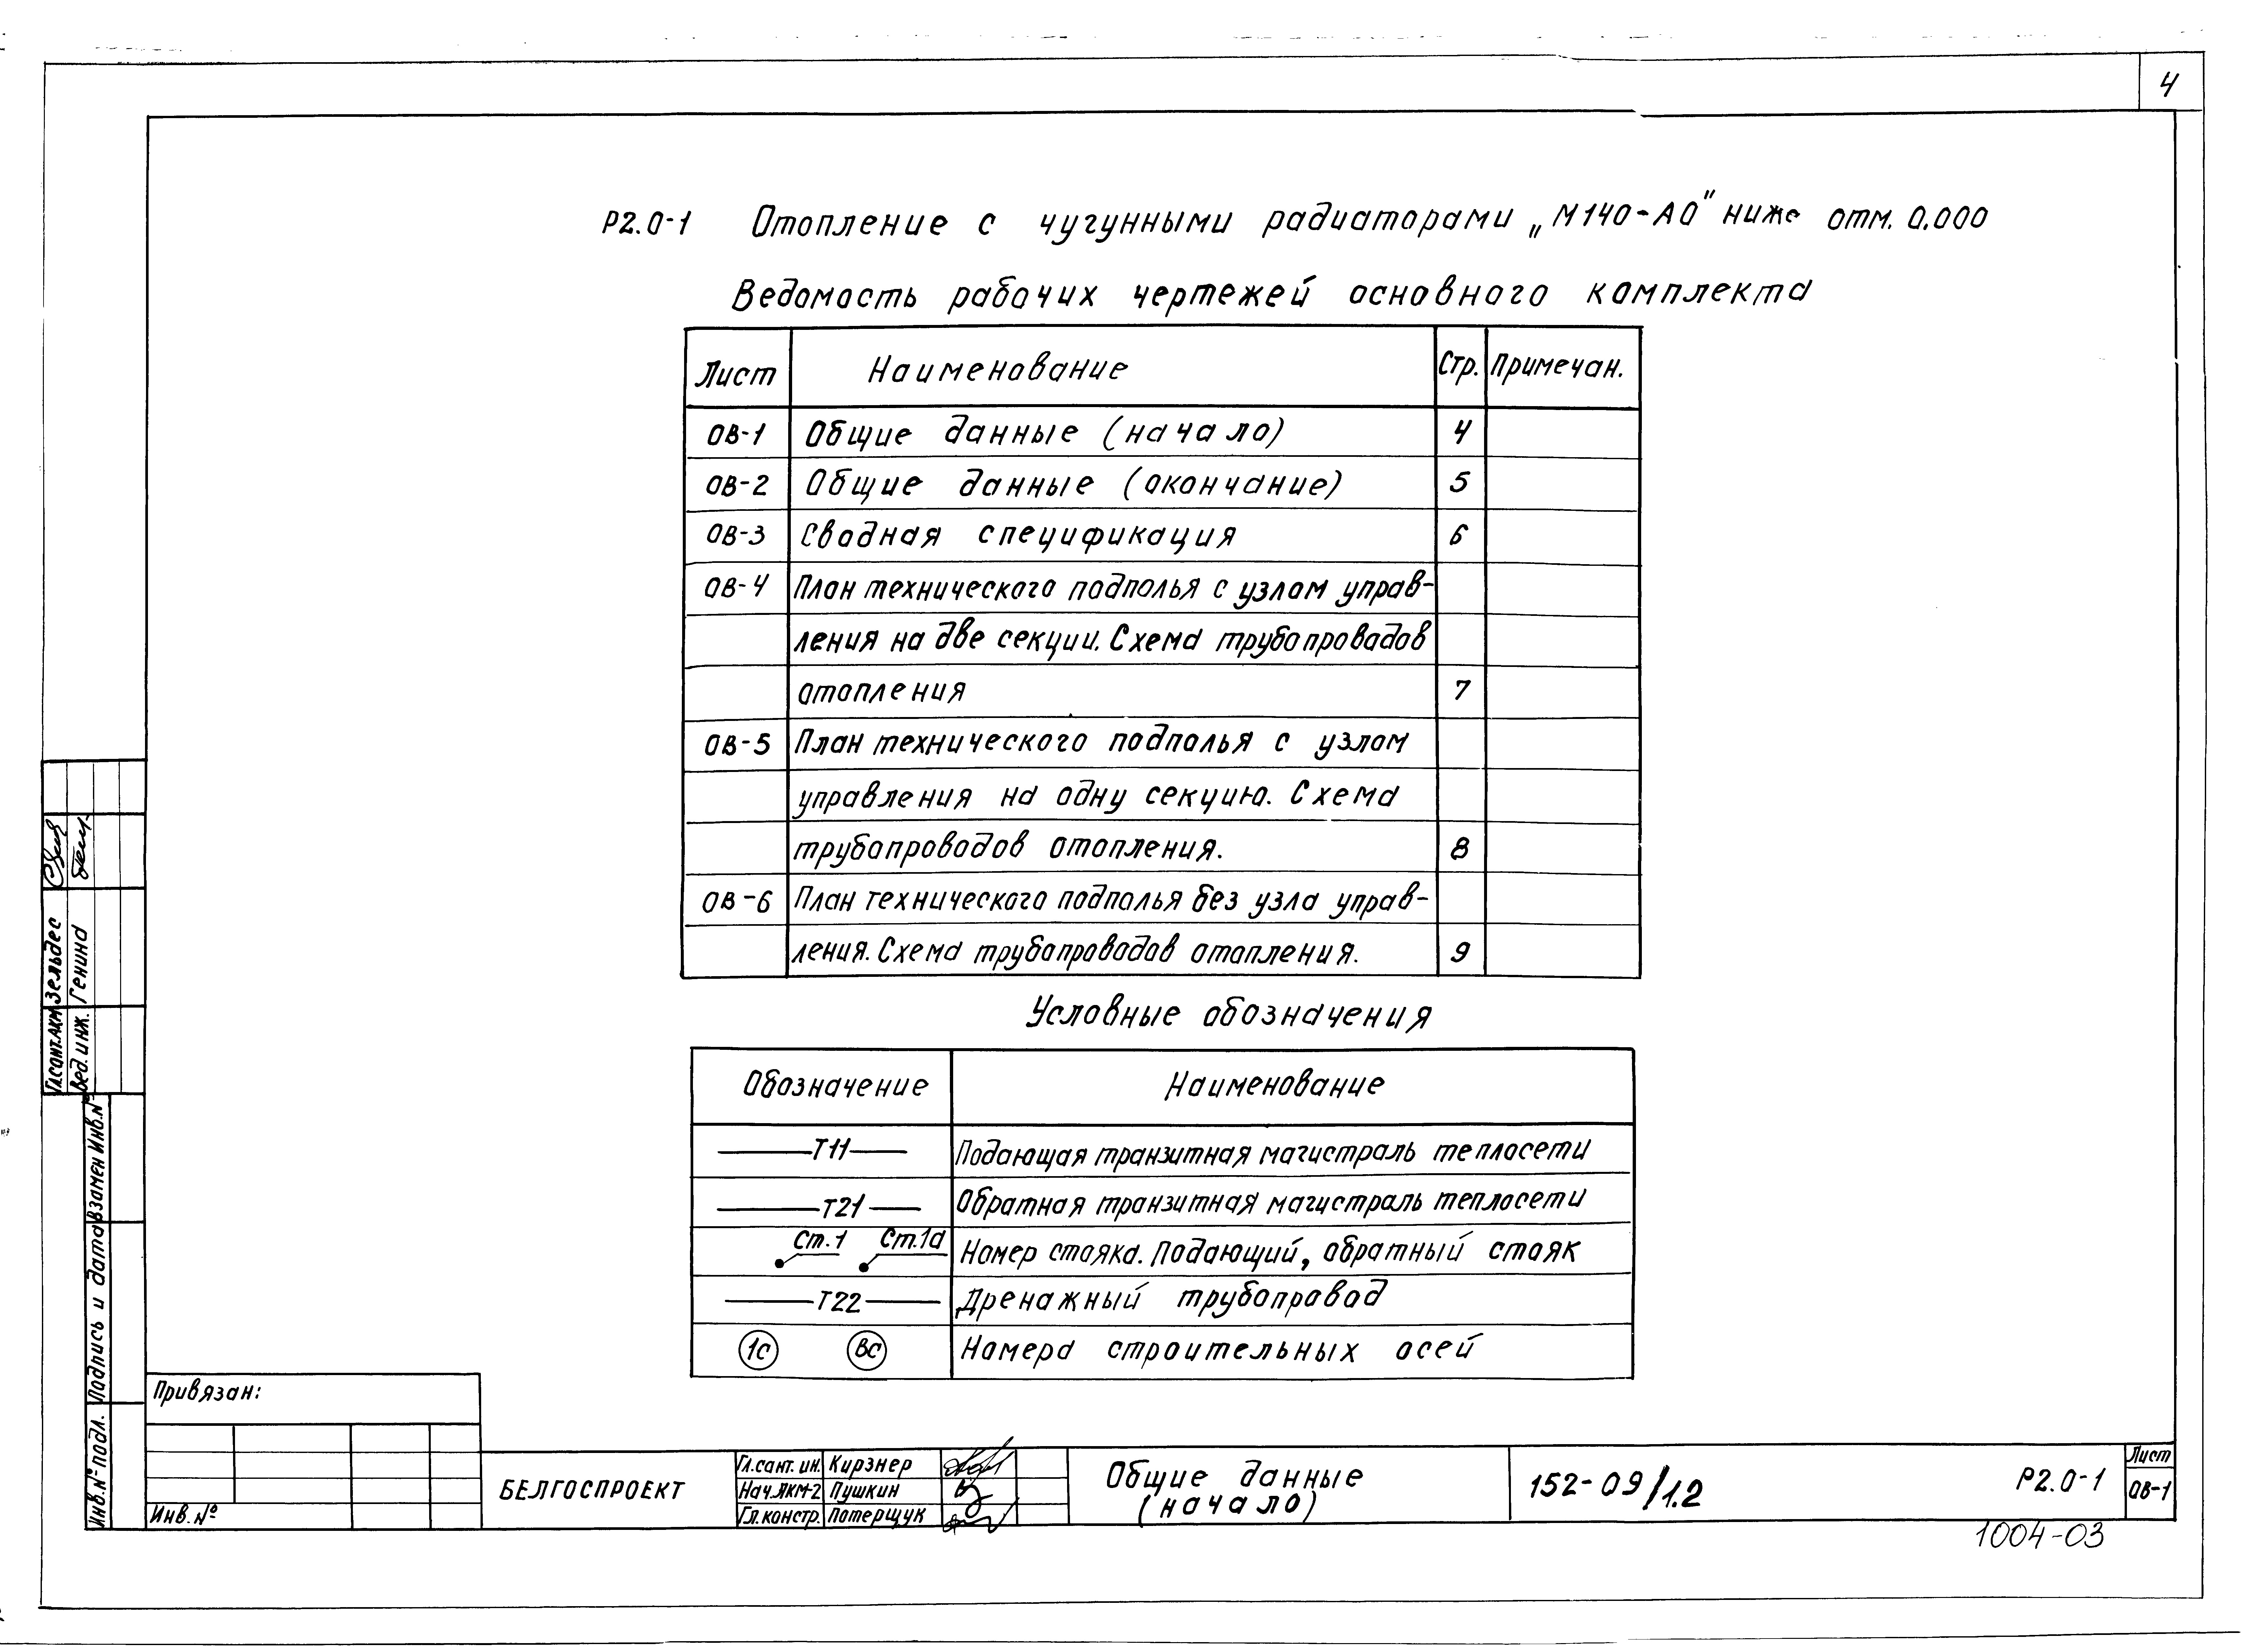 4
Р2.0-1 Отопление с чугунными радиаторами „М140-АО" ниже отм. 0.000
Ведомость рабочих чертежей основного комплекта
Лист Наименование Стр. Примечан.
ОВ-1 Общие данные (начало) 4
ОВ-2 Общие данные (окончание) 5
ОВ-3 Сводная спецификация 6
ОВ-4 План технического подполья с узлом управ-
ления на две секции. Схема трубопроводов
отопления 7
ОВ-5 План технического подполья с узлом
управления на одну секцию. Схема
трубопроводов отопления. 8
ОВ-6 План технического подполья без узла управ-
ления. Схема трубопроводов отопления. 9
Условные обозначения
Обозначение Наименование
Т11 Подающая транзитная магистраль теплосети
Т21 Обратная транзитная магистраль теплосети
Ст.1 Ст.1а Номер стояка. Подающий, обратный стояк
Т22 Дренажный трубопровод
1с Вс Номера строительных осей
Гл.сант.АКМ Зельдес
Вед.инж. Генина
Инв.№ подл. Подпись и дата Взамен Инв.№
Привязан:
Инв.№
БЕЛГОСПРОЕКТ
Гл.сант.ин. Кирзнер
Нач.АКМ-2 Пушкин
Гл.констр. Потерщук
Общие данные
(начало)
152-09/1.2
Р2.0-1
Лист
ОВ-1
1004-03